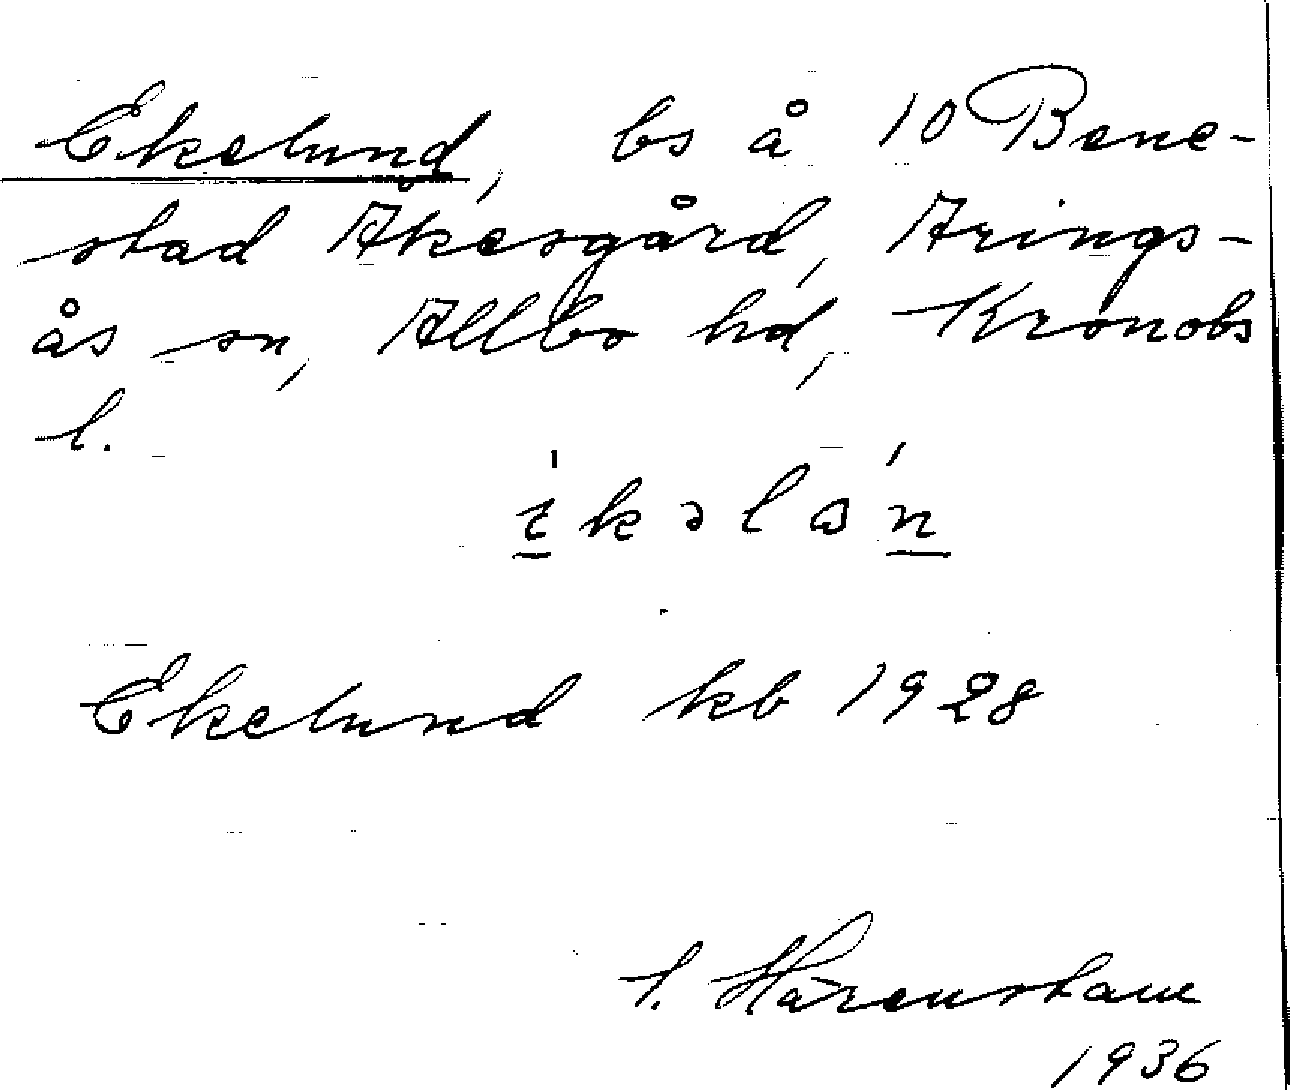 Ekelund, bs å 10 Bene-
stad Åkesgård, Arings-
ås sn, Allbo hd, Kronobs
l.
Ekelund kb 1928
Härenstam
1936